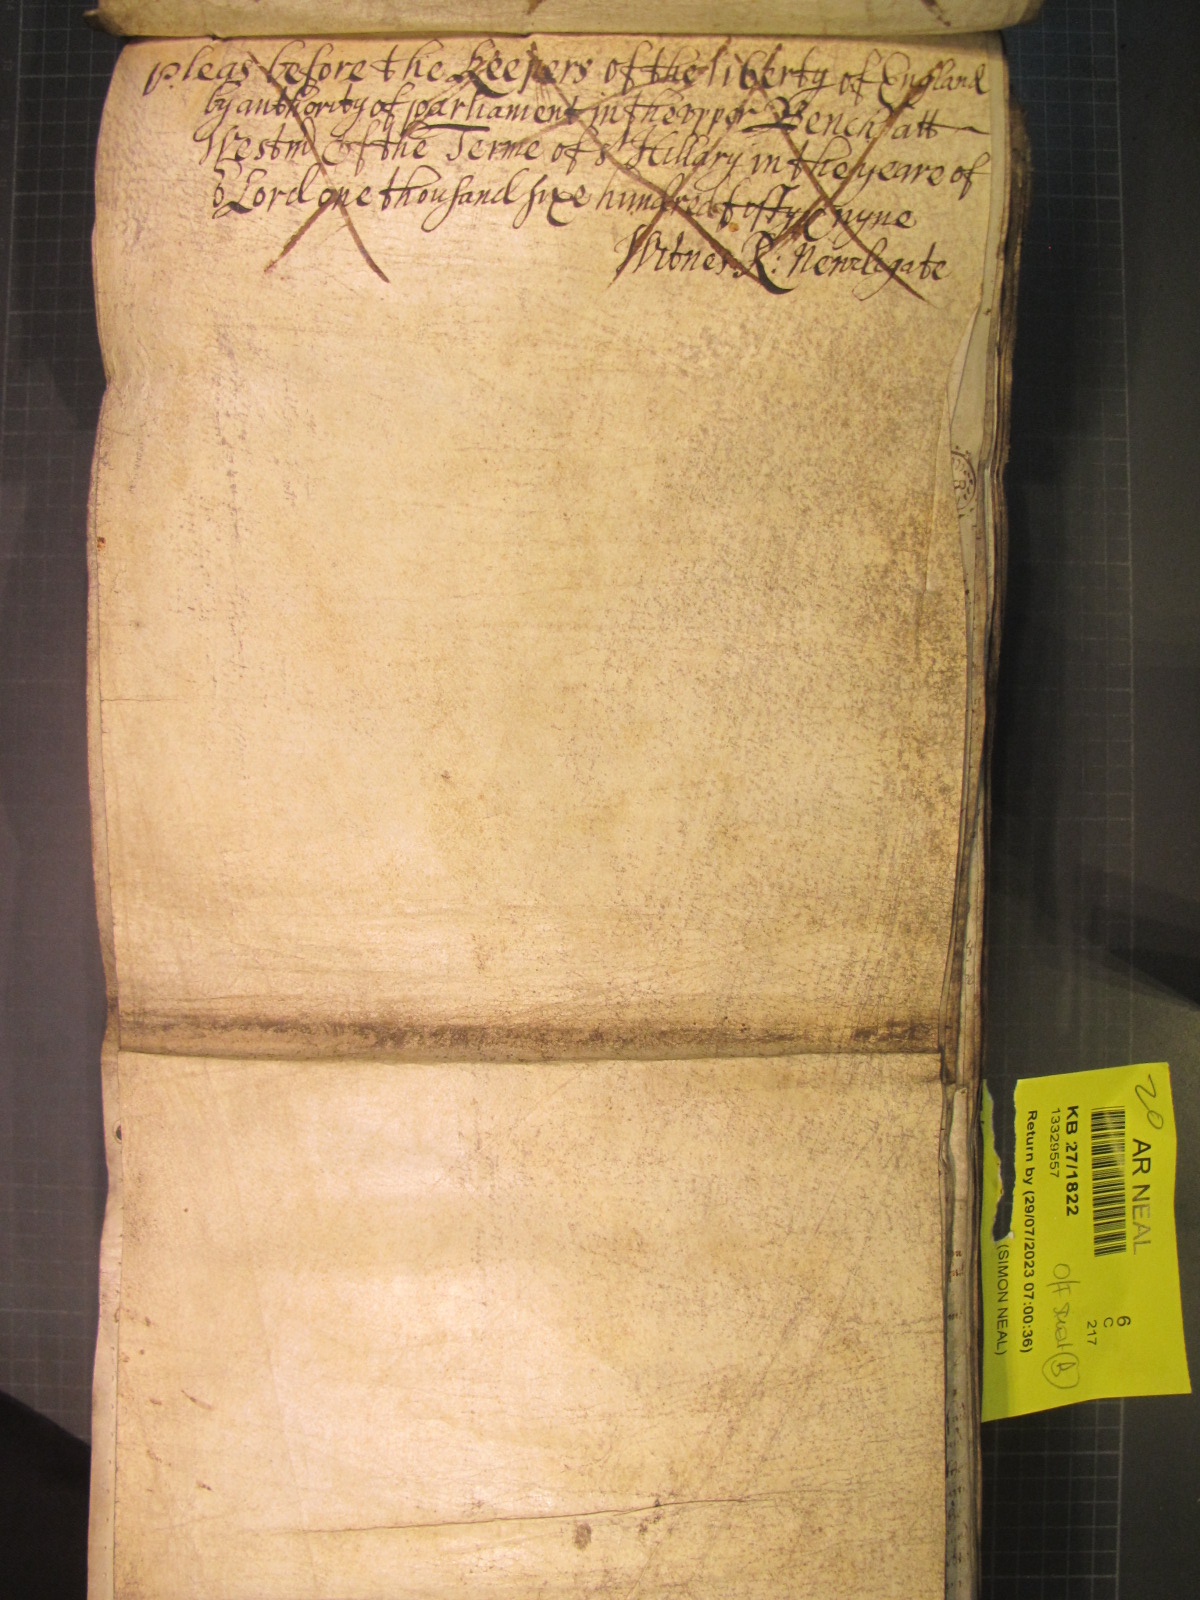 Pleas before the Keepers of the liberty of England
by authority of parliament in the upper Bench att
Westm of the Terme of St Hillary in the yeare of
or Lord one thousand sixe hundred fiftye nyne
Witnes R: Newdegate
20
AR NEAL
KB 27/1822
13329557
Return by (29/07/2023 07:00:36)
(SIMON NEAL)
6
C
217